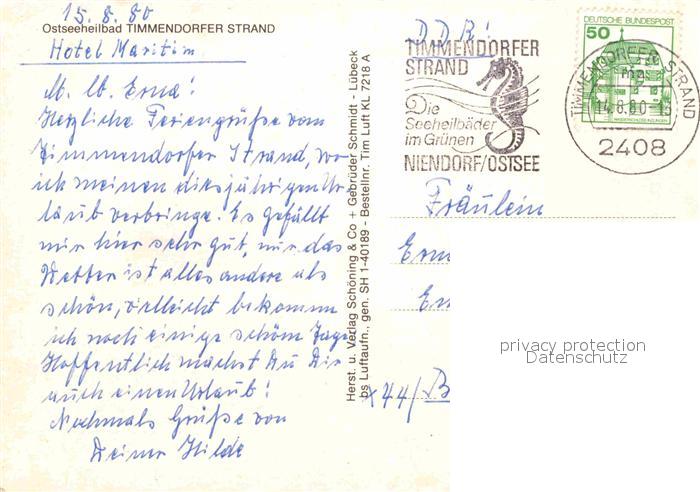 15.8.80
Ostseeheilbad TIMMENDORFER STRAND
Hotel Maritim
M. lb. Erna!
Herzliche Feriengrüße vom
Timmendorfer Strand, wo
ich meinen diesjährigen Ur-
laub verbringe. Es gefällt
mir hier sehr gut, nur das
Wetter ist alles andere als
schön, vielleicht bekomm
ich noch einige schöne Tage
Hoffentlich machst Du Dir
auch einen Urlaub!
Nochmals Grüße von
Deiner Hilde
Herst. u. Verlag Schöning & Co + Gebrüder Schmidt - Lübeck
bs Luftaufn., gen. SH 1-40189 - Bestellnr. Tim Luft KL 7218 A
DDR!
TIMMENDORFER
STRAND
Die
Seeheilbäder
im Grünen
NIENDORF/OSTSEE
DEUTSCHE BUNDESPOST
50
TIMMENDORFER STRAND
14.8.80-1
2408
Fräulein
x44/B
privacy protection
Datenschutz